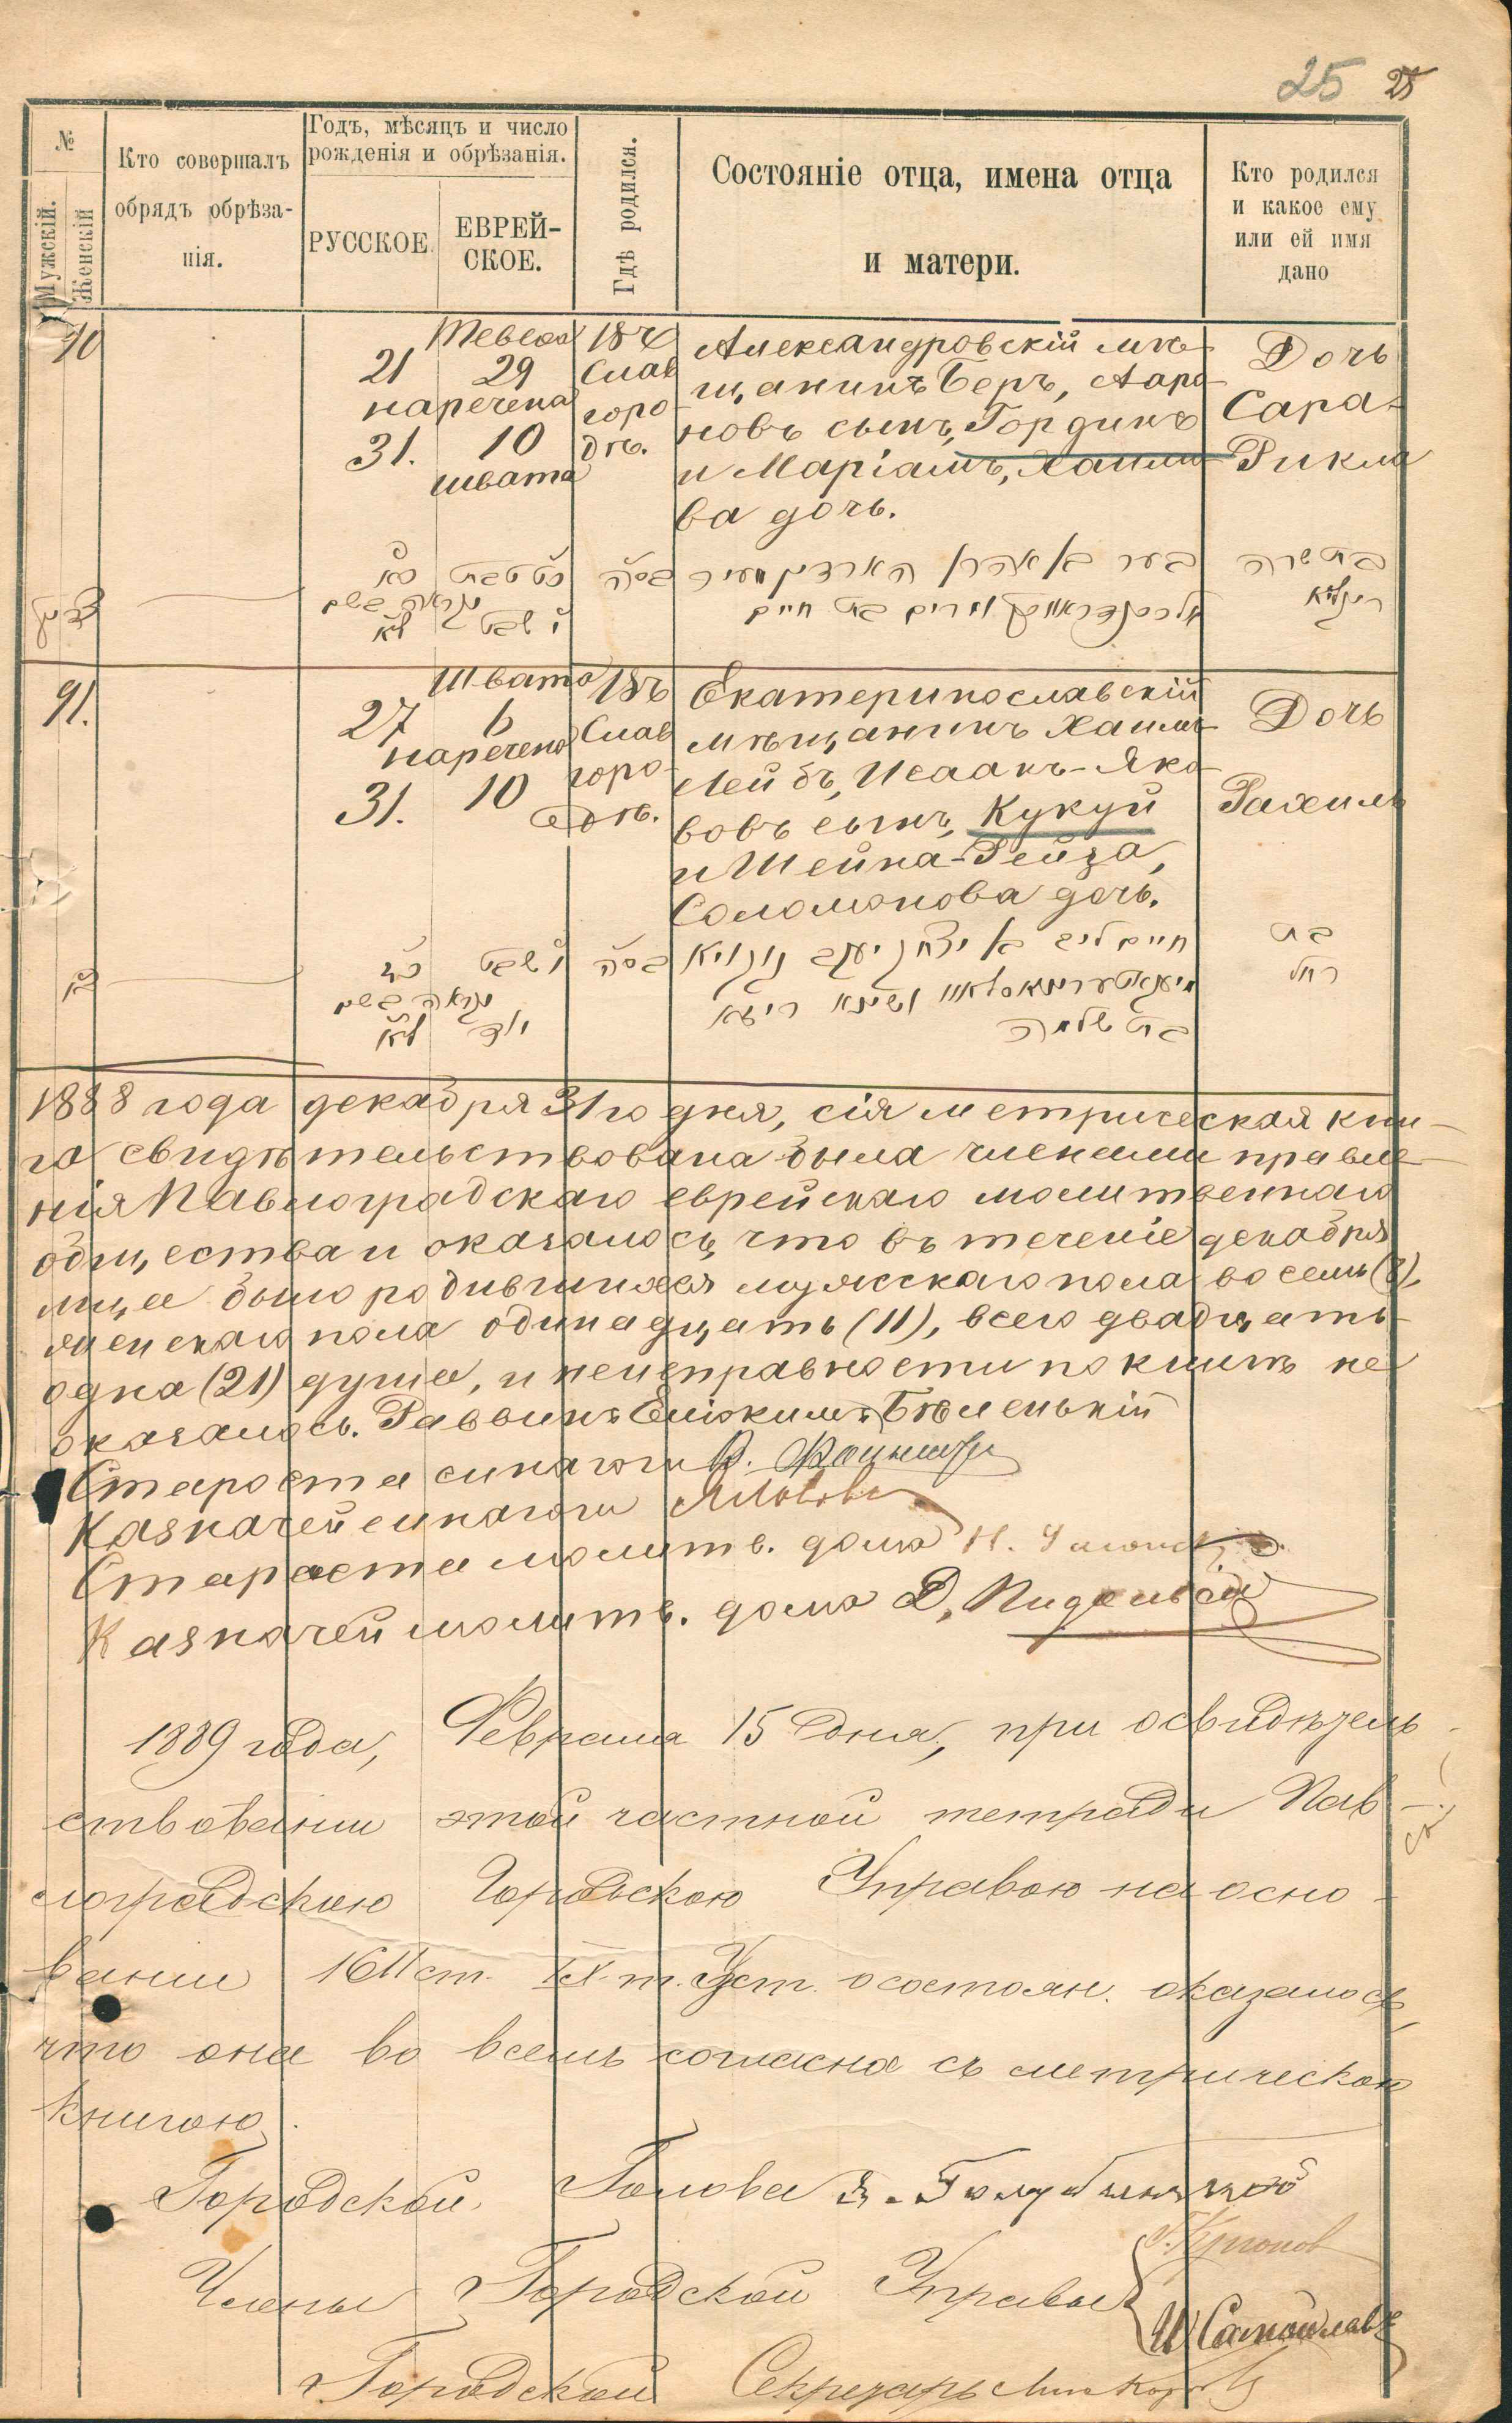 25 25
№
Мужскій.
Женскій
Кто совершалъ
обрядъ обрѣза-
нія.
Годъ, мѣсяцъ и число
рожденія и обрѣзанія.
РУССКОЕ
ЕВРЕЙ-
СКОЕ.
Гдѣ родился.
Состояніе отца, имена отца
и матери.
Кто родился
и какое ему
или ей имя
дано
90
21
наречена
31.
Тевеса
29
10
швата
Слав
горо-
дѣ.
Александровскій мѣ-
щанинъ Беръ, Ааро-
новъ сынъ, Гординъ
и Маріамъ, Хаимо-
ва дочь.
Дочь
Сара-
Рикла
כא
נקראה בשם
לא
כט טבת
י שבט
פה
בער בן אהרן גארדין מעיר
אלכסנדראווסק ומרים בת חיים
בת שרה
ריקלא
91.
27
наречена
31.
Швата
6
10
Слав
горо-
дѣ.
Екатеринославскій
мѣщанинъ Хаимъ-
Лейбъ, Исаакъ-Яко-
вовъ сынъ, Кукуй
и Шейна-Рейза,
Соломонова дочь.
Дочь
Рахиль
כז
נקראה בשם
לא
ו שבט
חיים ליב בן יצחק יעקב קוקויא
ושיינא רייזא
בת שלמה
בת
רחל
1888 года декабря 31го дня, сія метрическая кни-
га свидѣтельствована была членами правле-
нія Павлоградскаго еврейскаго молитвеннаго
общества и оказалось, что въ теченіе декабря
мца было родившихся мужскаго пола восемь (8),
женскаго пола одинадцать (11), всего двадцать
одна (21) душа, и неисправности по книгѣ не
оказалось. Раввинъ Еліокимъ Бѣленькій
Староста синагоги В.
Казначей синагоги
Староста молитв. дома Н.
Казначей молитв. дома Д.
1889 года, Февраля 15 дня, при освидѣтель-
ствованіи этой частной тетради Пав-
лоградскою Городскою Управою на осно-
ваніи 1611 ст. IX т. Уст. о состоян. оказалось,
что она во всемъ согласна съ метрическою
книгою.
Городской Голова Я. Голубицкій
Члены Городской Управы
Городской Секретарь